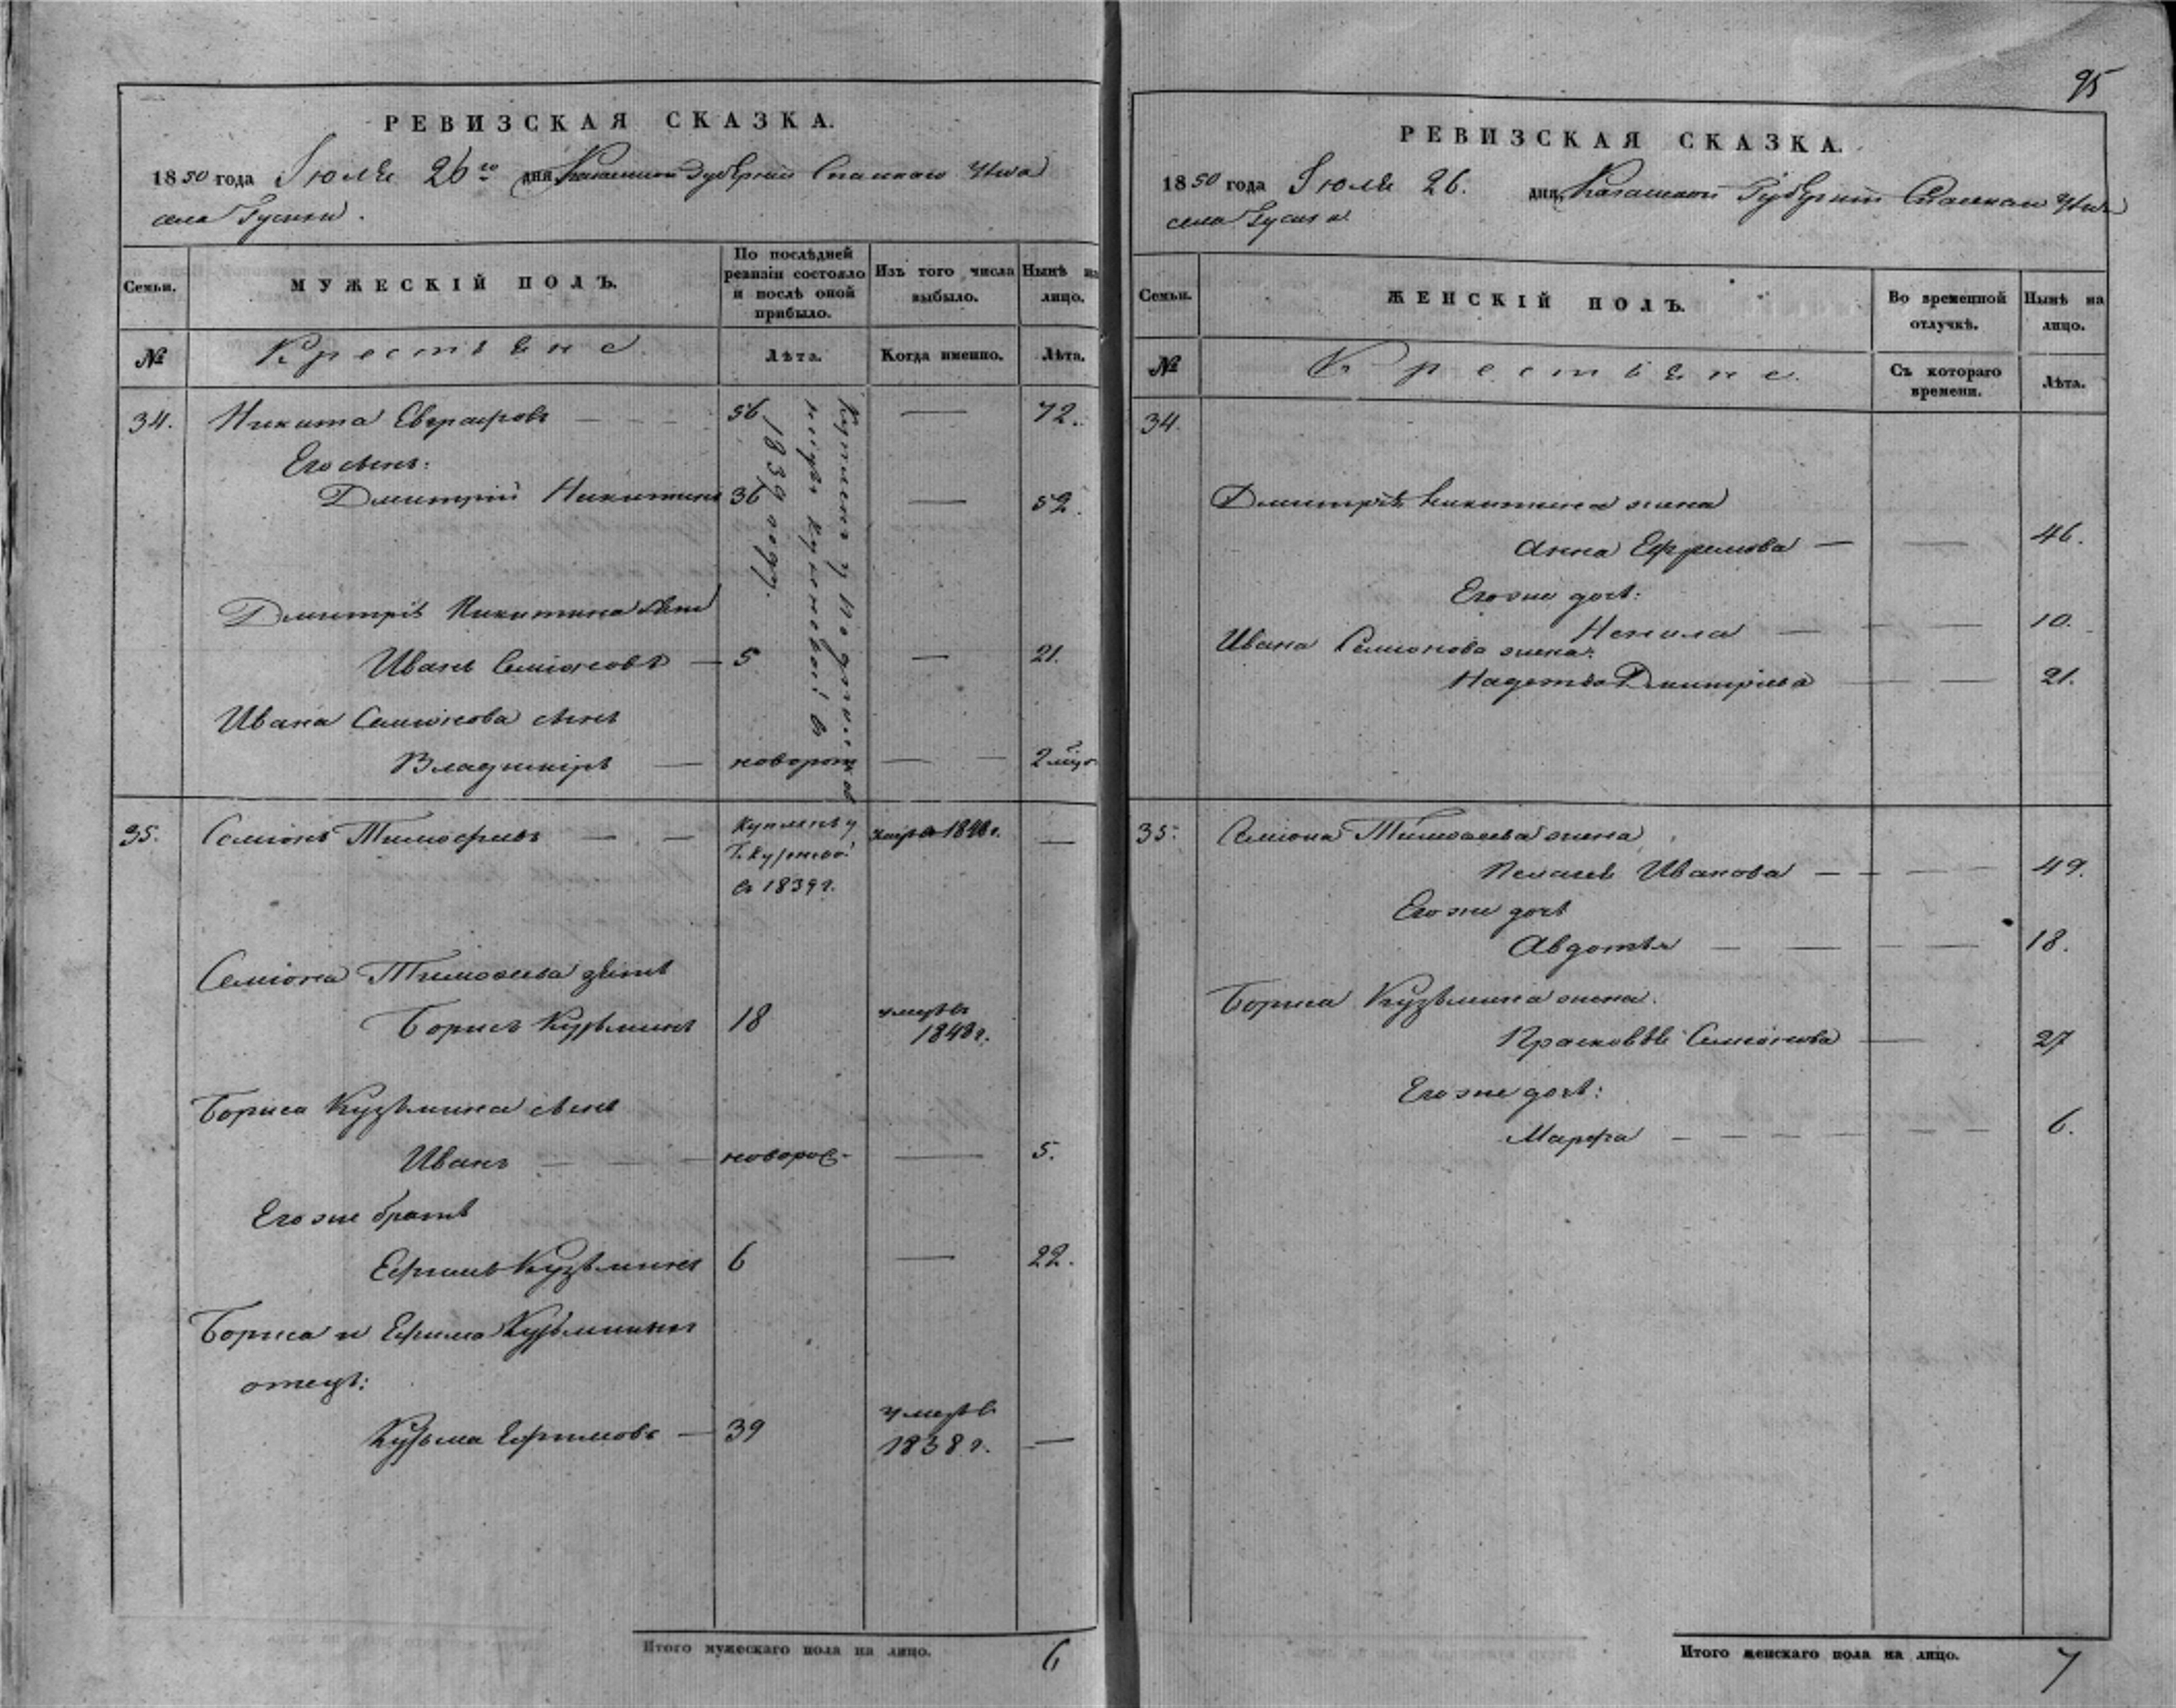 РЕВИЗСКАЯ СКАЗКА.
1850 года Іюля 26го дня Казанской Губерніи Спаскаго Уѣзда
села Гусихи.
Семьи.
МУЖЕСКІЙ ПОЛЪ.
По послѣдней ревизіи состояло и послѣ оной прибыло.
Изъ того числа выбыло.
Нынѣ на лицо.
№
Крестьяне
Лѣта.
Когда именно.
Лѣта.
34. Никита Евграфовъ — 56 — 72.
Его сынъ:
Дмитрій Никитинъ 36 — 52.
Куплены у
Куроѣдовой въ
1839 году.
Дмитрія Никитина
Иванъ Семіоновъ — 5 — 21.
Ивана Семіонова сынъ
Владиміръ — новорож — 2
35. Семіонъ Тимофѣевъ — — Купленъ у
въ 1839 г.
умеръ въ 1848 г. —
Семіона Тимофеева
Борисъ Кузьминъ 18 умеръ въ
1848 г.
Бориса Кузьмина сынъ
Иванъ — — — новорож — 5.
Его же братъ
Ефимъ Кузьминъ 6 — 22.
Бориса и Ефима Кузьминыхъ
отецъ:
Кузьма Ефимовъ — 39 умеръ въ
1838 г. —
Итого мужескаго пола на лицо. 6
95
РЕВИЗСКАЯ СКАЗКА.
1850 года Іюля 26. дня, Казанской Губерніи Спаскаго Уѣзда
села Гусихи
Семьи.
ЖЕНСКІЙ ПОЛЪ.
Во временной отлучкѣ.
Нынѣ на лицо.
№
Крестьяне.
Съ котораго времени.
Лѣта.
34.
Дмитрія Никитина жена
Анна Ефремова — — 46.
Его же дочь:
Ненила — — — 10.
Ивана Семіонова жена:
Надежда Дмитріева — — 21.
35. Семіона Тимофеева жена
Пелагея Иванова — — — 49.
Его же дочь
Авдотья — — — — 18.
Бориса Кузьмина жена.
Прасковья Семіонова — 27
Его же дочь:
Марфа — — — — — — 6.
Итого женскаго пола на лицо. 7